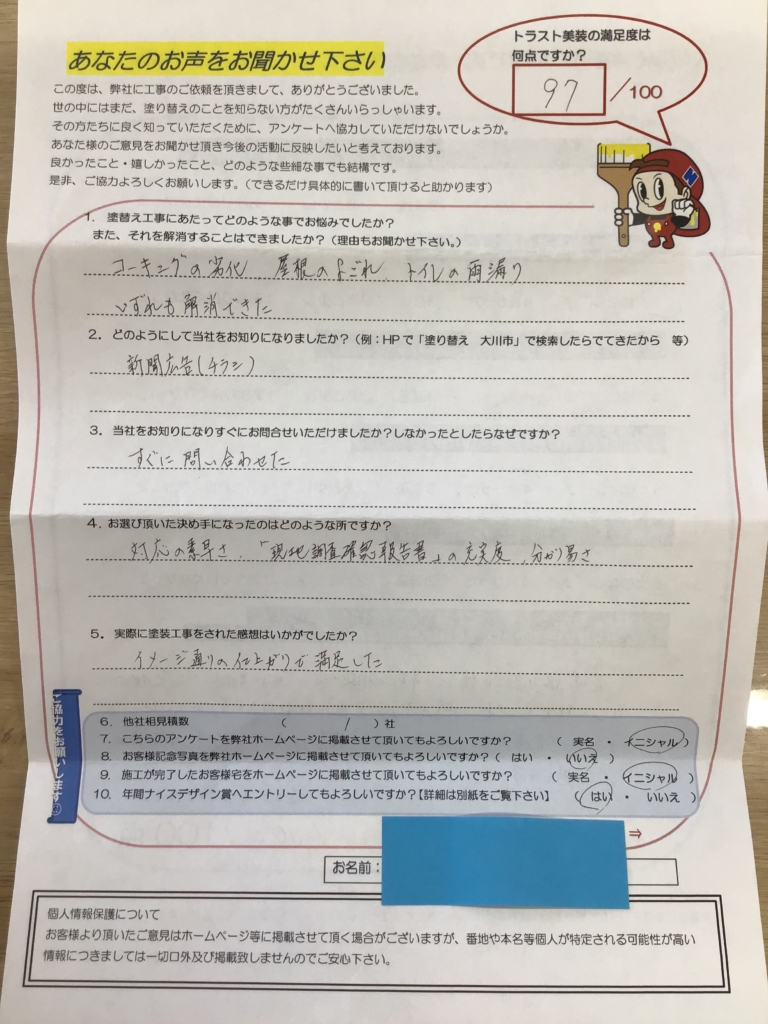 あなたのお声をお聞かせ下さい
トラスト美装の満足度は
何点ですか?
97 /100
この度は、弊社に工事のご依頼を頂きまして、ありがとうございました。
世の中にはまだ、塗り替えのことを知らない方がたくさんいらっしゃいます。
その方たちに良く知っていただくために、アンケートへ協力していただけないでしょうか。
あなた様のご意見をお聞かせ頂き今後の活動に反映したいと考えております。
良かったこと・嬉しかったこと、どのような些細な事でも結構です。
是非、ご協力よろしくお願いします。(できるだけ具体的に書いて頂けると助かります)
1. 塗替え工事にあたってどのような事でお悩みでしたか?
また、それを解消することはできましたか?(理由もお聞かせ下さい。)
コーキングの劣化 屋根のよごれ、トイレの雨漏り
いずれも解消できた
2. どのようにして当社をお知りになりましたか?(例:HPで「塗り替え 大川市」で検索したらでてきたから 等)
新聞広告(チラシ)
3. 当社をお知りになりすぐにお問合せいただけましたか?しなかったとしたらなぜですか?
すぐに問い合わせた
4. お選び頂いた決め手になったのはどのような所ですか?
対応の素早さ、「現地調査確認報告書」の充実度、分かり易さ
5. 実際に塗装工事をされた感想はいかがでしたか?
イメージ通りの仕上がりで満足した
ご協力をお願いします
6. 他社相見積数 ( / )社
7. こちらのアンケートを弊社ホームページに掲載させて頂いてもよろしいですか? ( 実名 ・ イニシャル )
8. お客様記念写真を弊社ホームページに掲載させて頂いてもよろしいですか?( はい ・ いいえ )
9. 施工が完了したお客様宅をホームページに掲載させて頂いてもよろしいですか? ( 実名 ・ イニシャル )
10. 年間ナイスデザイン賞へエントリーしてもよろしいですか?【詳細は別紙をご覧下さい】 ( はい ・ いいえ )
⇒
お名前:
個人情報保護について
お客様より頂いたご意見はホームページ等に掲載させて頂く場合がございますが、番地や本名等個人が特定される可能性が高い
情報につきましては一切口外及び掲載致しませんのでご安心下さい。